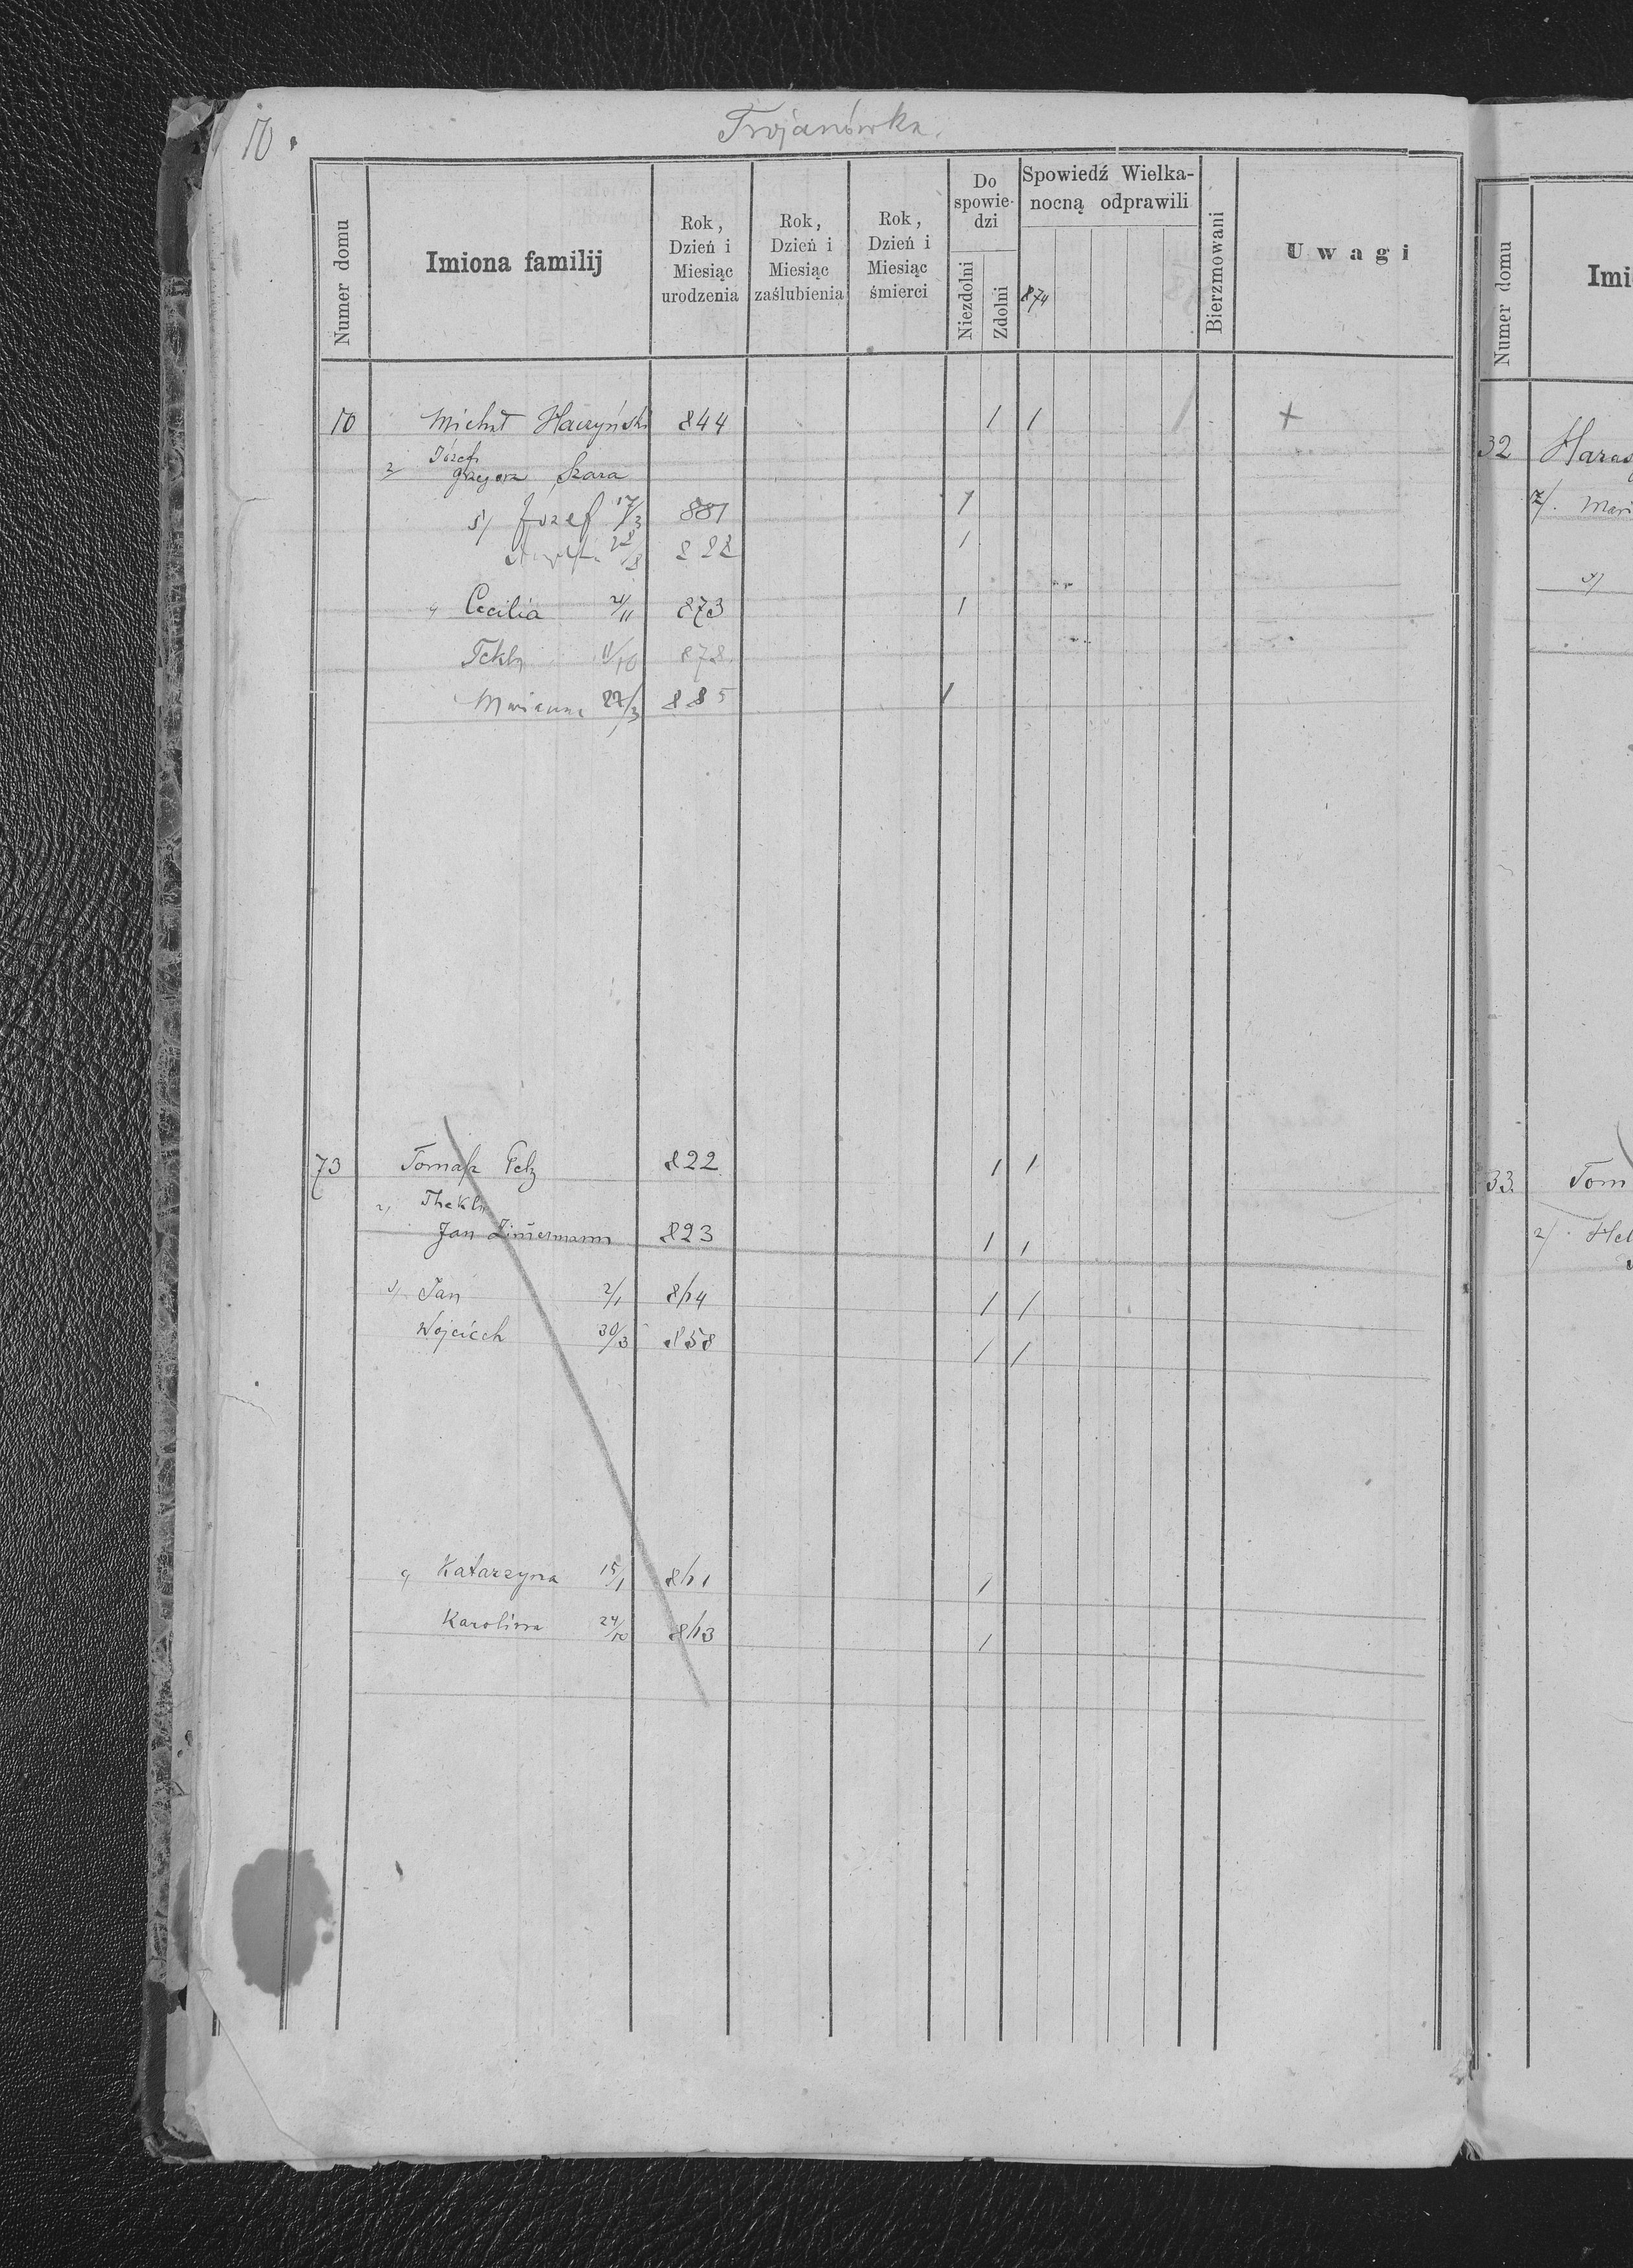 10.
Trojanówka.
Numer domu
Imiona familij
Rok, Dzień i Miesiąc urodzenia
Rok, Dzień i Miesiąc zaślubienia
Rok, Dzień i Miesiąc śmierci
Do spowiedzi
Niezdolni
Zdolni
Spowiedź Wielkanocną odprawili
874
Bierzmowani
Uwagi
10 Michał Haczyński 844 1 1 +
Józef
2, Grzegorz Szara
s/ Józef 17/3 881 1
28/8 888 1
c, Cecilia 21/11 873 1
Tekla 11/10 878
Marianna 22/3 885 1
73 Tomasz Pelz 822 1 1
2, Thekla
Jan Zimermann 823 1 1
s/ Jan 2/1 8 4 1 1
Wojciech 30/3 858 1 1
c, Katarzyna 15/1 8 1 1
Karolina 24/10 8 3 1
Numer domu
Imi
32
2/.
s/
33. Tom
2/. Hel